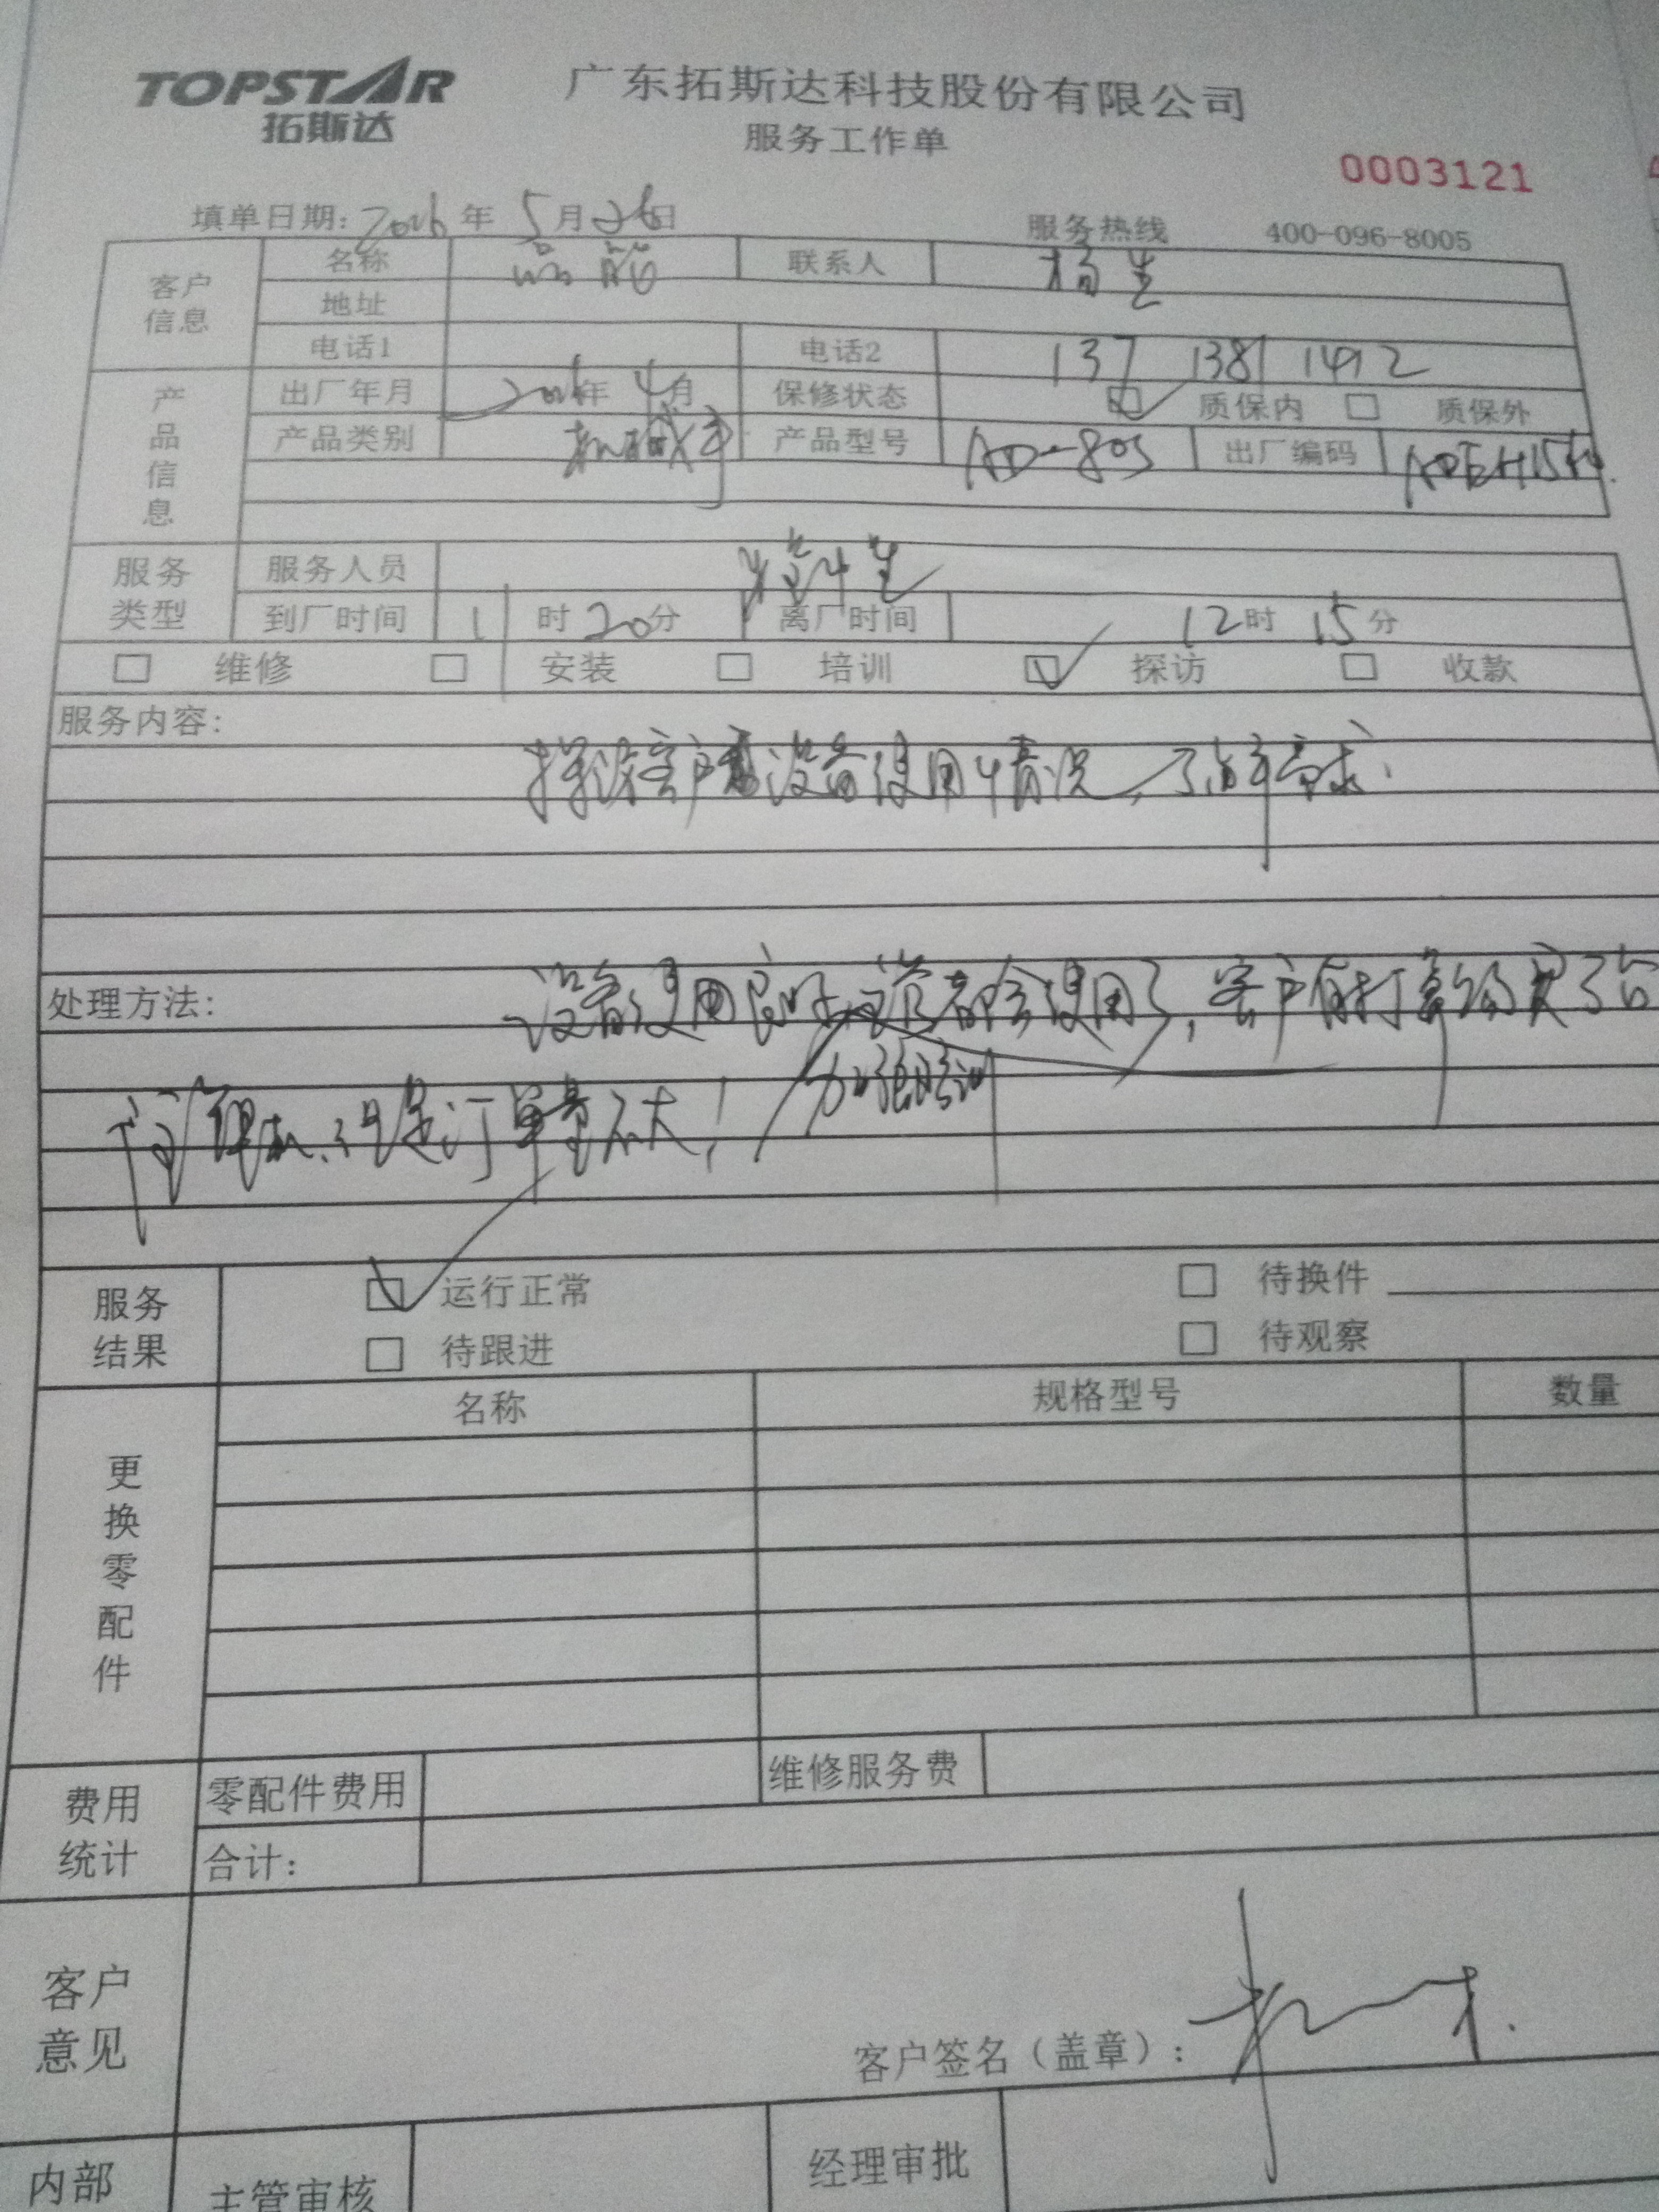 TOPSTAR
拓斯达
广东拓斯达科技股份有限公司
服务工作单
0003121
填单日期: 2016 年 5 月 26 日
服务热线 400-096-8005
客户信息
名称
联系人 杨生
地址
电话1
电话2 137 1381 1492
产品信息
出厂年月 2016年 4月
保修状态 质保内 质保外
产品类别 机械手
产品型号 AD-80S
出厂编码
服务类型
服务人员
到厂时间 11 时 20 分
离厂时间 12 时 15 分
维修 安装 培训 探访 收款
服务内容:
探访客户 设备使用情况,了解 需求
处理方法:
设备使用良好 都会使用了,客户有打算 买3台
机械 但是订单量不大! 加强培训
服务结果
运行正常 待换件
待跟进 待观察
更换零配件
名称 规格型号 数量
费用统计
零配件费用 维修服务费
合计:
客户意见
客户签名(盖章):
内部
主管审核 经理审批